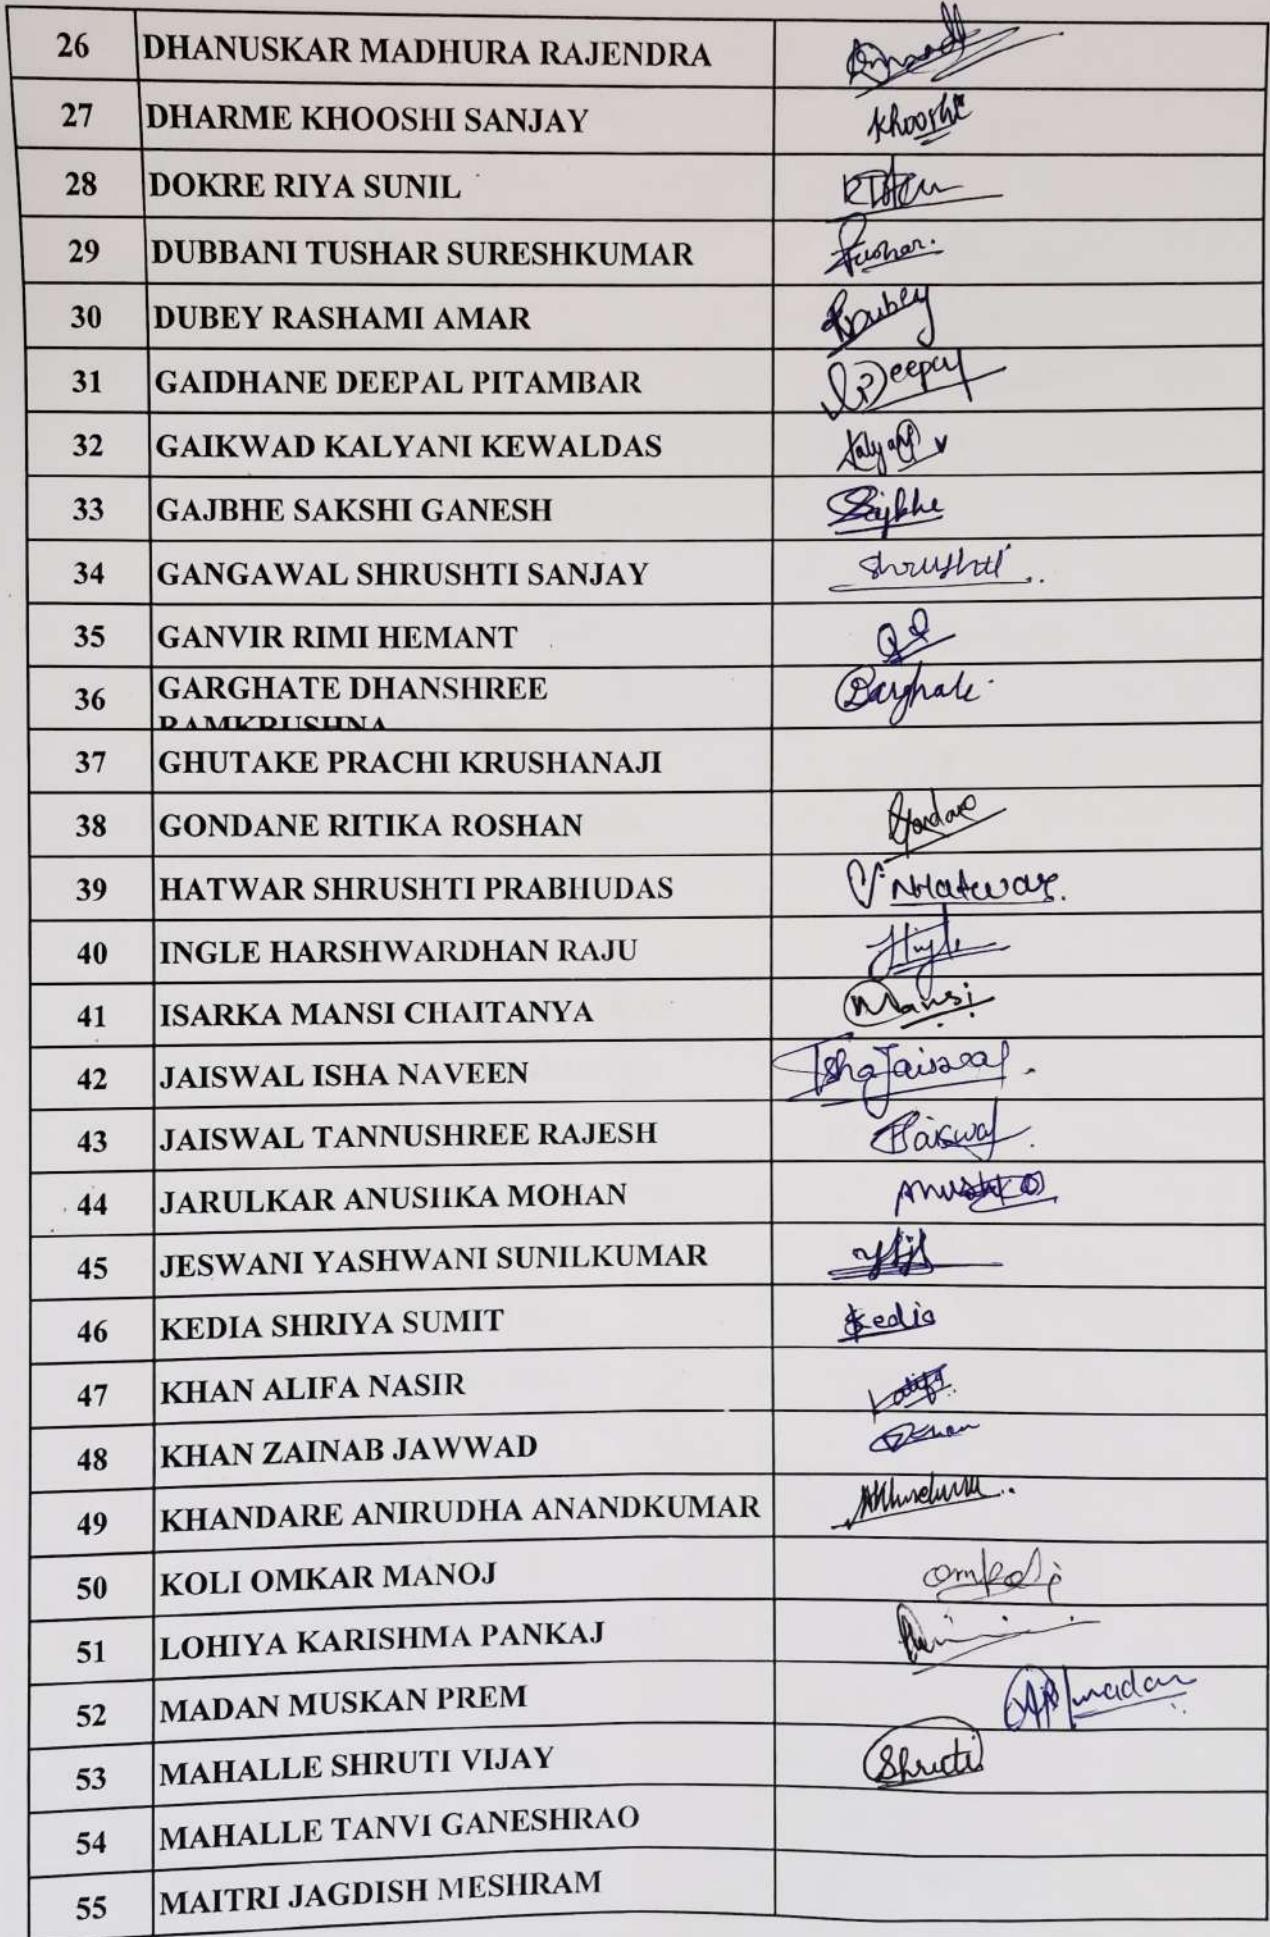 26 DHANUSKAR MADHURA RAJENDRA
27 DHARME KHOOSHI SANJAY Khooshi
28 DOKRE RIYA SUNIL
29 DUBBANI TUSHAR SURESHKUMAR Tushar.
30 DUBEY RASHAMI AMAR RDubey
31 GAIDHANE DEEPAL PITAMBAR Deepal
32 GAIKWAD KALYANI KEWALDAS Kalyani
33 GAJBHE SAKSHI GANESH
34 GANGAWAL SHRUSHTI SANJAY Shrushti
35 GANVIR RIMI HEMANT
36 GARGHATE DHANSHREE
RAMKRUSHNA
37 GHUTAKE PRACHI KRUSHANAJI
38 GONDANE RITIKA ROSHAN
39 HATWAR SHRUSHTI PRABHUDAS Hatwar.
40 INGLE HARSHWARDHAN RAJU
41 ISARKA MANSI CHAITANYA Mansi
42 JAISWAL ISHA NAVEEN Isha Jaiswal.
43 JAISWAL TANNUSHREE RAJESH Jaiswal.
44 JARULKAR ANUSHKA MOHAN
45 JESWANI YASHWANI SUNILKUMAR
46 KEDIA SHRIYA SUMIT Kedia
47 KHAN ALIFA NASIR
48 KHAN ZAINAB JAWWAD ZKhan
49 KHANDARE ANIRUDHA ANANDKUMAR
50 KOLI OMKAR MANOJ
51 LOHIYA KARISHMA PANKAJ
52 MADAN MUSKAN PREM madan
53 MAHALLE SHRUTI VIJAY Shruti
54 MAHALLE TANVI GANESHRAO
55 MAITRI JAGDISH MESHRAM